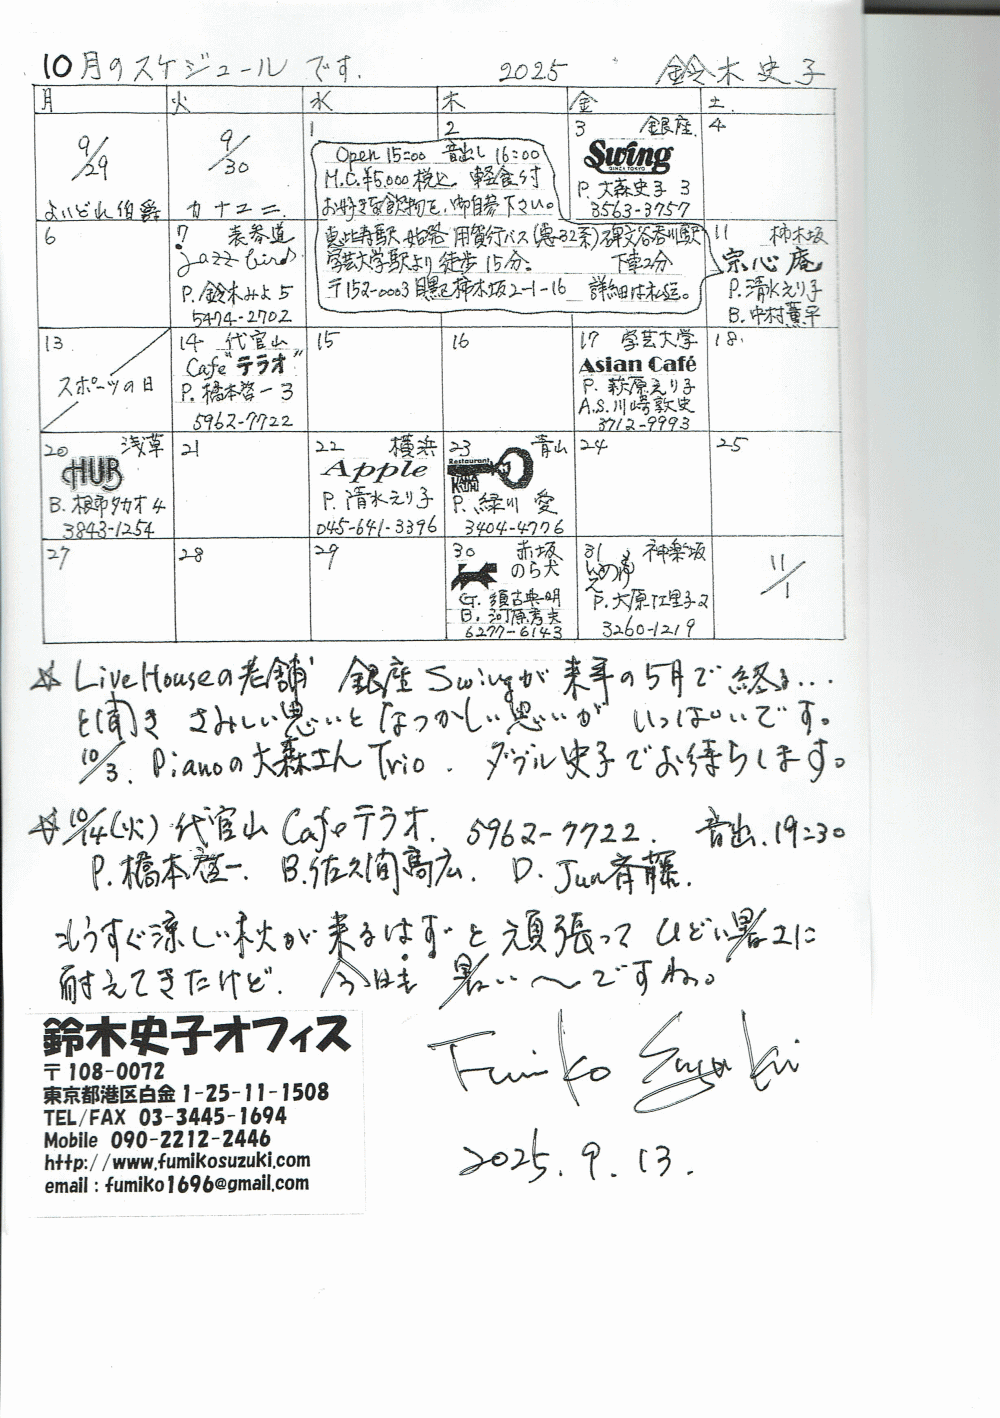 10月のスケジュールです. 2025 鈴木史子
月 火 水 木 金 土
9/29
よいどれ伯爵
9/30
カナユニ
1
2
Open 15:00 音出し 16:00
M.C.¥5,000 税込. 軽食付
お好きな飲物を, 御自参下さい。
恵比寿駅始発 用賀行バス(恵32系)碑文谷香川駅
学芸大学駅より徒歩15分。 下車2分
〒152-0003 目黒区柿木坂2-1-16 詳細は私迄。
3 銀座
Swing
GINZA TOKYO
P. 大森史子 3
3563-3757
4
6
7 表参道
jazz bird
P. 鈴木みよ 5
5474-2702
11 柿木坂
宗心庵
P. 清水えり子
B. 中村薫平
13
スポーツの日
14 代官山
Cafe "テラオ"
P. 橋本啓一 3
5962-7722
15
16
17 学芸大学
Asian Café
P. 萩原えり子
A.S. 川崎敦史
3712-9993
18
20 浅草
HUB
B. 根市タカオ 4
3843-1254
21
22 横浜
Apple
P. 清水えり子
045-641-3396
23 青山
Restaurant
P. 緑川 愛
3404-4776
24
25
27
28
29
30 赤坂
のら犬
G. 須古典明
B. 河原秀夫
6277-6143
31 神楽坂
P. 大原江里子 2
3260-1219
11/1
☆ Live Houseの老舗 銀座 Swingが来年の5月で終る...
と聞き さみしい思いとなつかしい思いが いっぱいです。
10/3. Pianoの大森さん Trio. ダブル史子でお待ちします。
☆ 10/14(火) 代官山 Cafeテラオ. 5962-7722. 音出. 19:30
P. 橋本啓一. B. 佐久間高広. D. Jun斉藤.
もうすぐ涼しい秋が来るはずと頑張ってひどい暑さに
耐えてきたけど. 今日も暑い〜ですね。
Fumiko Suzuki
2025. 9. 13.
鈴木史子オフィス
〒108-0072
東京都港区白金1-25-11-1508
TEL/FAX 03-3445-1694
Mobile 090-2212-2446
http://www.fumikosuzuki.com
email : fumiko1696@gmail.com